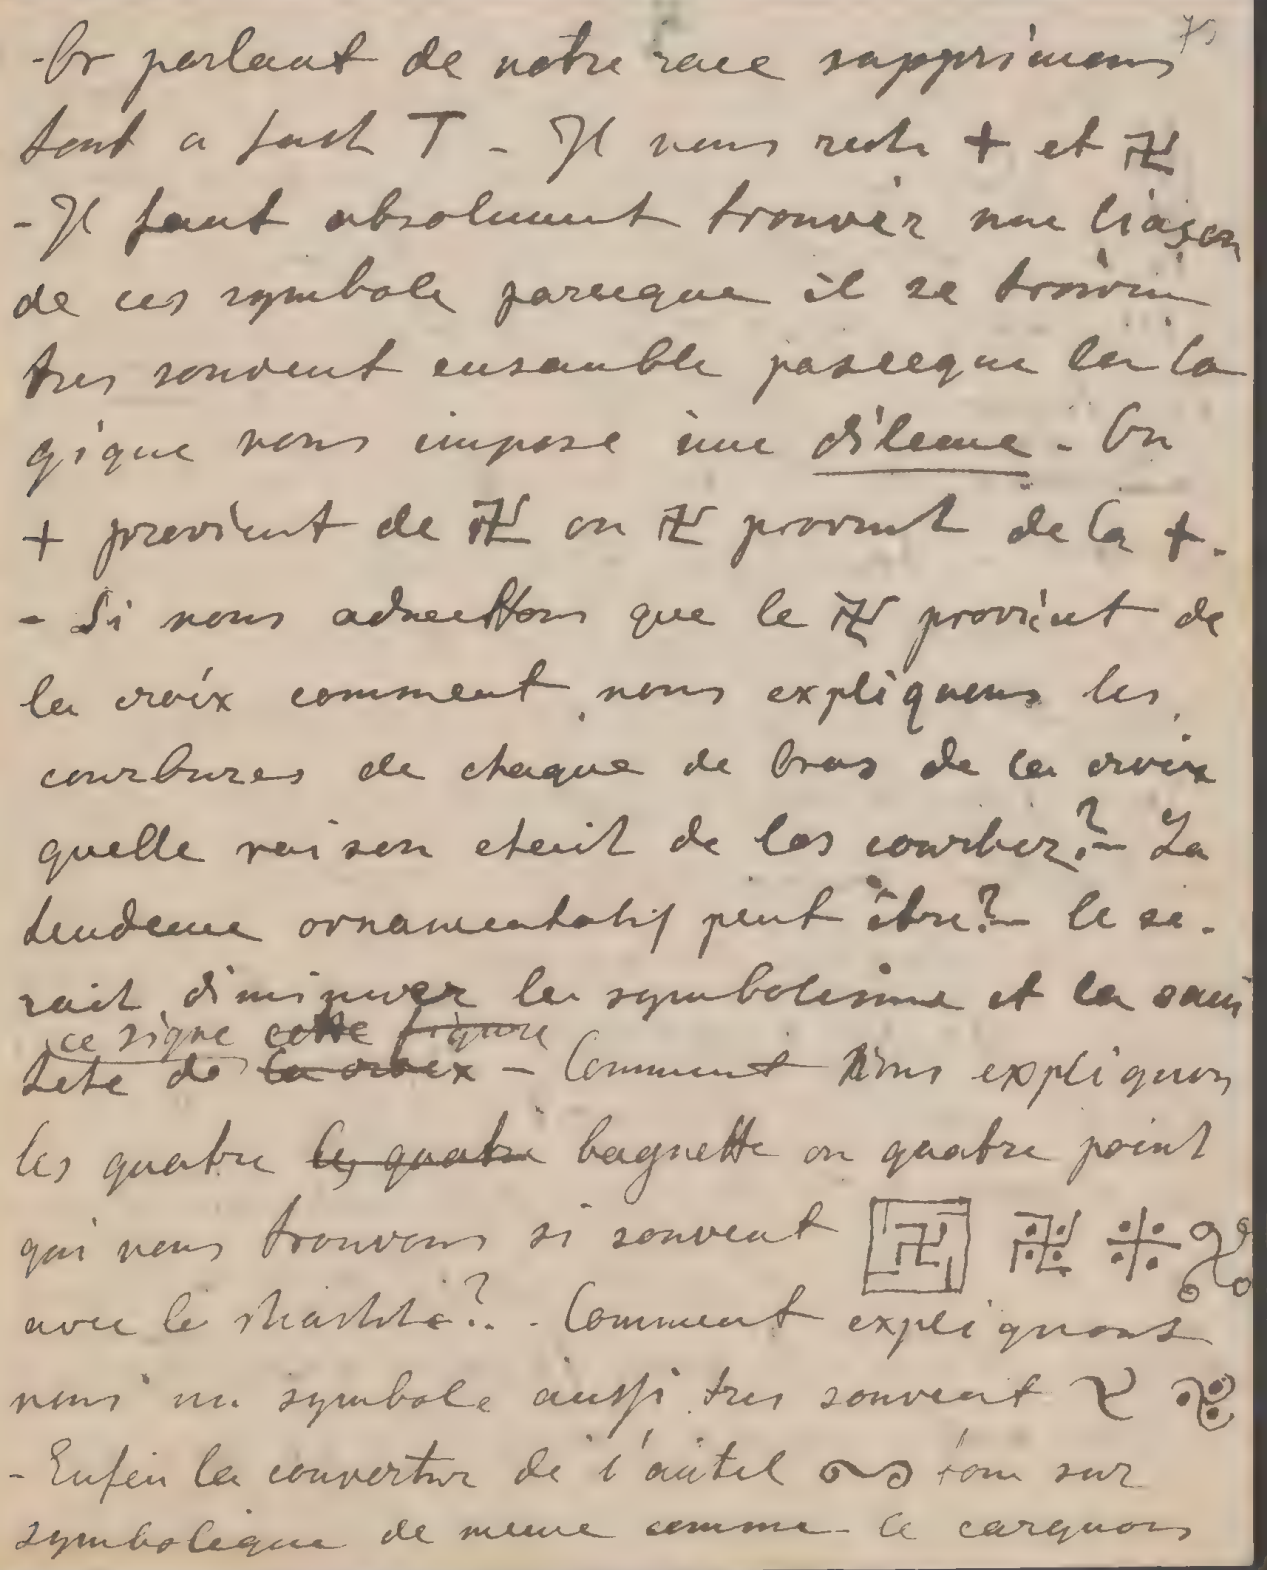 75
- Or parlant de notre race supprimons
tout a fait T - Il nous reste + et 卍
- Il faut absolument trouver une liaison
de ces symbole parceque il se trouvent
tres souvent ensamble parceque la lo
gique nous impose une dileme - Ou
+ provient de 卍 ou 卍 provint de la +.
- Si nous admettons que le 卍 provient de
la croix comment nous expliquons les
courbures de chaque de bras de la croix
quelle raison etait de les courber? - La
tendence ornamentatif peut être? - Ce se-
rait diminuer le symbolisme et la sain
ce signe cette figure
teté de la croix - Comment nous expliquons
les quatre les quatre bagnette ou quatre point
qui nous trouvons si souvent 卍 卍
avec le ? . Comment expliquons
nous un symbole aussi tres souvent
- Enfin la couverture de l'autel sur
symbolique de meme comme - le